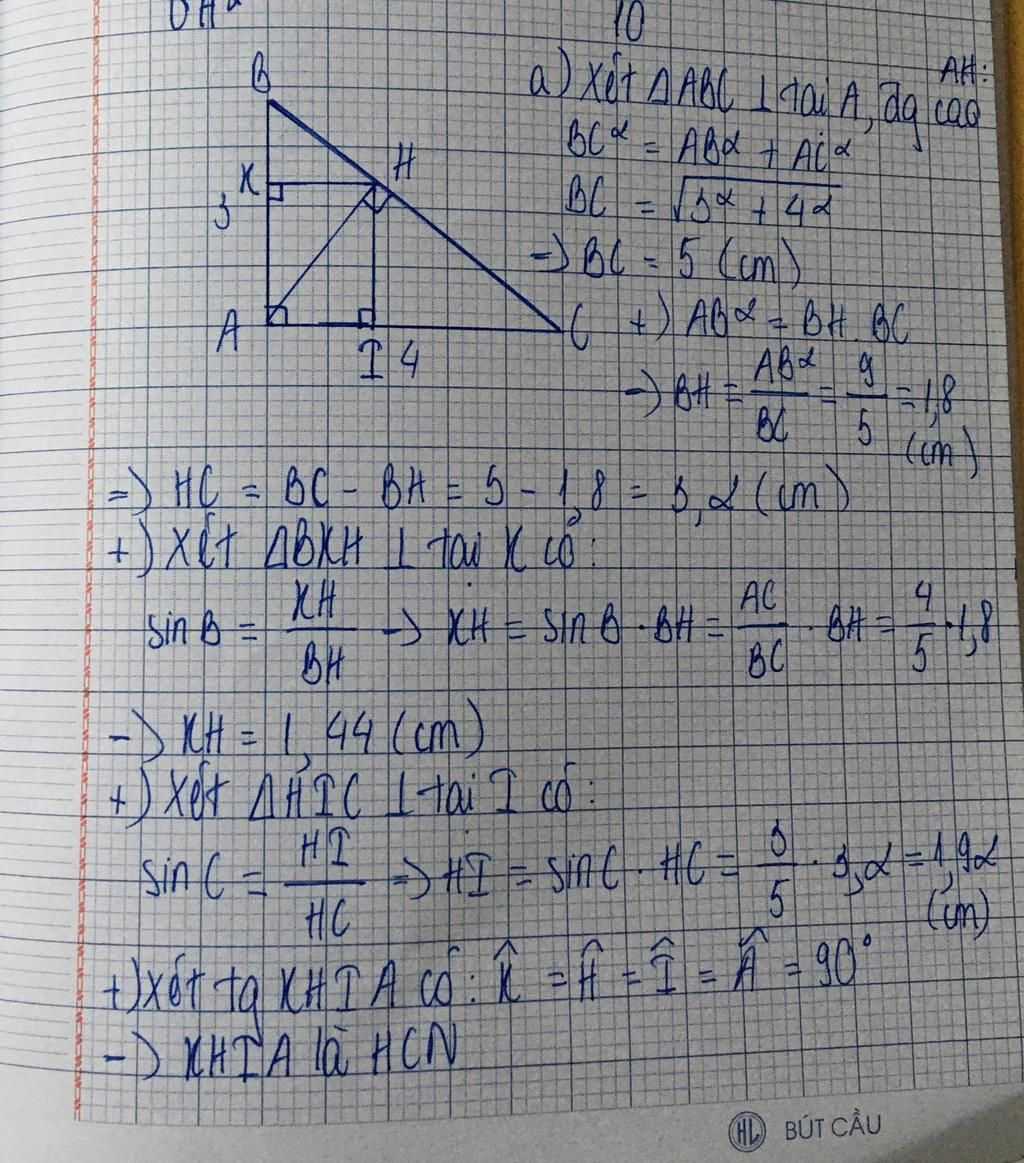 10
B
K
H
3
A
I 4
C
a) Xét ΔABC ⊥ tại A, đg cao AH:
BC² = AB² + AC²
BC = √3² + 4²
=> BC = 5 (cm)
+) AB² = BH.BC
-> BH = AB²/BC = 9/5 = 1,8 (cm)
=> HC = BC - BH = 5 - 1,8 = 3,2 (cm)
+) Xét ΔBKH ⊥ tại K có:
sin B = KH/BH -> KH = sin B . BH = AC/BC . BH = 4/5 . 1,8
-> KH = 1,44 (cm)
+) Xét ΔHIC ⊥ tại I có:
sin C = HI/HC => HI = sin C . HC = 3/5 . 3,2 = 1,92 (cm)
+) Xét tg KHIA có: K̂ = Ĥ = Î = Â = 90°
-> KHIA là HCN
HL BÚT CẦU